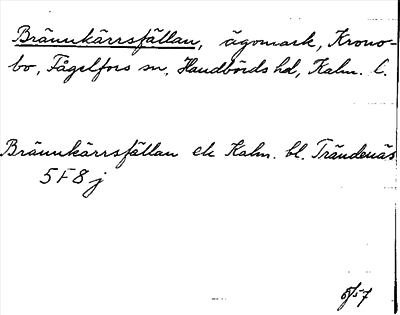 Brännkärrsfällan, ägomark, Krono-
bo, Fågelfors sn, Handbörds hd, Kalm. l.
Brännkärrsfällan ek Kalm. bl. Trändenäs
5F8j